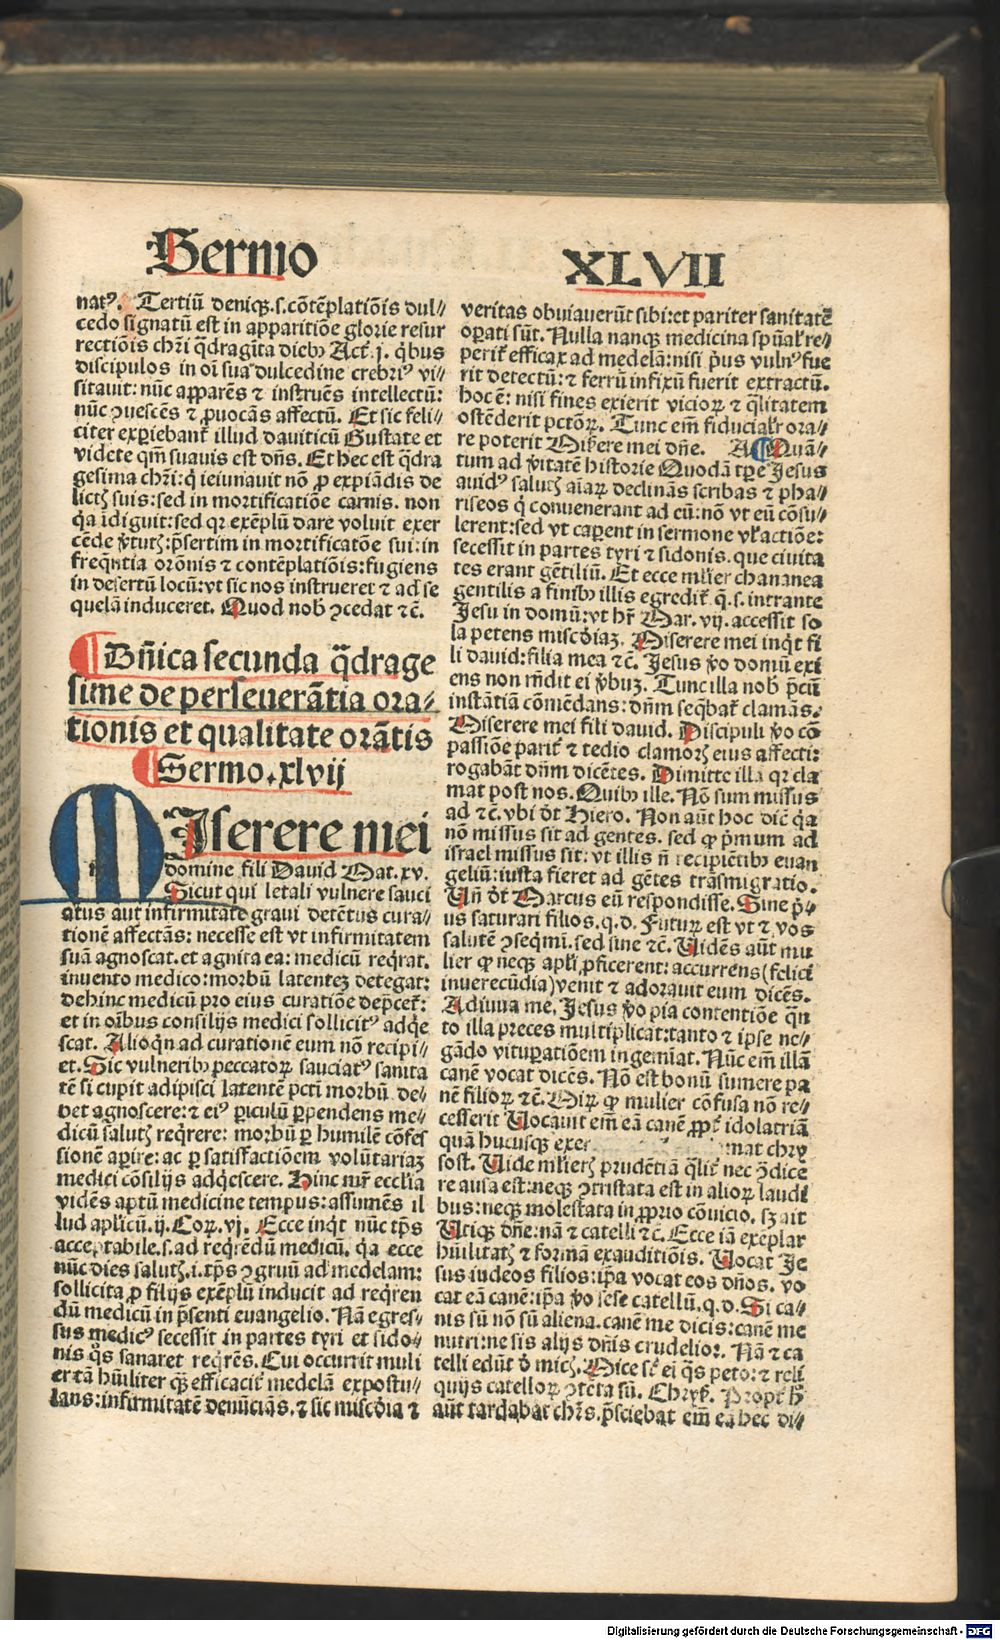 Sermo
XLVII
natꝰ. Tertiũ deniqꝫ.s.cõtẽplatiõis dul⸗
cedo signatũ est in apparitiõe glorie resur
rectiõis chr̃i q̃dragĩta diebꝫ Act̃.j. q̃bus
discipulos in oĩ sua dulcedine crebriꝰ vi⸗
sitauit: nũc apparẽs ⁊ instruẽs intellectũ:
nũc ꝯuescẽs ⁊ ꝓuocãs affectũ. Et sic feli⸗
citer exꝑiebant̃ illud dauiticũ Gustate et
videte qm̃ suauis est dñs. Et hec est q̃dra
gesima chr̃i: q̃ ieiunauit nõ ꝓ expiãdis de
lictꝭ suis: sed in mortificatiõe carnis. non
q̃a ĩdiguit: sed qꝛ exẽplũ dare voluit exer
cẽde ṽtutꝭ: p̃sertim in mortificatõe sui: in
freq̃ntia orõnis ⁊ contẽplatiõis: fugiens
in desertũ locũ: vt sic nos instrueret ⁊ ad se
quelã induceret. Quod nob̃ ꝯcedat ⁊c̃.
Dñica secunda q̃drage
sime de perseuerãtia ora⸗
tionis et qualitate orãtis
Sermo.xlvij
MIserere mei
domine fili Dauid Mat.xv.
Sicut qui letali vulnere sauci
atus aut infirmitate graui detẽtus cura⸗
tionẽ affectãs: necesse est vt infirmitatem
suã agnoscat. et agnita ea: medicũ req̃rat.
inuento medico: morbũ latenteꝫ detegat:
dehinc medicũ pro eius curatiõe dep̃cet̃:
et in oĩbus consilijs medici sollicitꝰ adq̃e
scat. Alioq̃n ad curationẽ eum nõ recipi⸗
et. Sic vulneribꝫ peccatoꝝ sauciatꝰ sanita
tẽ si cupit adipisci latentẽ pct̃i morbũ de⸗
bet agnoscere: ⁊ eiꝰ ꝑiculũ ꝑpendens me⸗
dicũ salutꝭ req̃rere: morbũ ꝑ humilẽ cõfes
sionẽ aꝑire: ac ꝑ satisfactiõem volũtariaꝫ
medici cõsilijs adq̃escere. Hinc mr̃ eccl̃ia
vidẽs aptũ medicine tempus: assumẽs il
lud apl̃icũ.ij.Coꝝ.vj. Ecce inq̃t nũc tp̃s
acceptabile.s.ad req̃rẽdũ medicũ. q̃a ecce
nũc dies salutꝭ.i.tp̃s ꝯgruũ ad medelam:
sollicita ꝓ filijs exẽplũ inducit ad req̃ren
dũ medicũ in p̃senti euangelio. Nã egres⸗
sus medicꝰ secessit in partes tyri et sido⸗
nis q̃s sanaret req̃rẽs. Cui occurrit muli
er tã hũiliter qꝫ efficacit̃ medelã expostu⸗
lans: infirmitatẽ denũciãs. ⁊ sic misc̃dia ⁊
veritas obuiauerũt sibi: et pariter sanitatẽ
oꝑati sũt. Nulla nanqꝫ medicina sp̃ual̃r re⸗
perit̃ efficax ad medelã: nisi p̃us vulnꝰ fue
rit detectũ: ⁊ ferrũ infixũ fuerit extractũ.
hoc ẽ: nisi fines exierit vicioꝝ ⁊ q̃litatem
ostẽderit pctõꝝ. Tunc em̃ fiducial̃r ora⸗
re poterit Misere̾re mei dñe. A Quã⸗
tum ad ṽitatẽ historie Quodã tꝑe Jesus
auidꝰ salutꝭ aĩaꝝ declinãs scribas ⁊ pha⸗
riseos q̃ conuenerant ad eũ: nõ vt eũ cõsu⸗
lerent: sed vt caꝑent in sermone vl̃ actiõe:
secessit in partes tyri ⁊ sidonis. que ciuita
tes erant gẽtiliũ. Et ecce ml̃ier chananea
gentilis a finibꝫ illis egredit̃ q̃.s. intrante
Jesu in domũ: vt hr̃ Mar.vij. accessit so
la petens misc̃diaꝫ. Miserere mei inq̃t fi
li dauid: filia mea ⁊c̃. Jesus ṽo domũ exi
ens non r̃ndit ei ṽbuꝫ. Tunc illa nob̃ p̃cũ
instãtiã cõmẽdans: dñm seq̃bat̃ clamãs.
Miserere mei fili dauid. Discipuli ṽo cõ
passiõe parit̃ ⁊ tedio clamorꝭ eius affecti:
rogabãt dñm dicẽtes. Dimitte illã qꝛ cla
mat post nos. Quibꝫ ille. Nõ sum missus
ad ⁊c̃. vbi d̃t Hiero. Non aũt hoc dic̃ q̃a
nõ missus sit ad gentes. sed ꝙ p̃mum ad
israel missus sit: vt illis ñ recipiẽtibꝫ euan
geliũ: iusta fieret ad gẽtes trãsmigratio.
Uñ d̃t Marcus eũ respondisse. Sine p̃⸗
us saturari filios.q.d. Futuꝝ est vt ⁊ vos
salutẽ ꝯseq̃mĩ. sed sine ⁊c̃. Uidẽs aũt mu
lier ꝙ neqꝫ apl̃i ꝓficerent: accurrẽs (felici
inuerecũdia) venit ⁊ adorauit eum dicẽs.
Adiuua me. Jesus ṽo pia contentiõe q̃n
to illa preces multiplicat: tanto ⁊ ipse ne⸗
gãdo vituꝑatiõem ingemiat. Nũc em̃ illã
canẽ vocat dicẽs. Nõ est bonũ sumere pa
nẽ filioꝝ ⁊c̃. Miꝝ ꝙ mulier cõfusa nõ re⸗
cesserit Uocauit em̃ eã canẽ ꝓpt̃ idolatriã
quã hucusqꝫ exer mat chry
sost. Uide ml̃ierꝭ prudẽtiã q̃lit̃ nec ꝯ̃dice
re ausa est: neqꝫ ꝯtristata est in alioꝝ laudi
bus: neqꝫ molestata in ꝓprio cõuicio. sꝫ ait
Utiqꝫ dñe: nã ⁊ catelli ⁊c̃. Ecce iã exẽplar
hũilitatꝭ ⁊ formã exauditiõis. Uocat Je
sus iudeos filios: ip̃a vocat eos dños. vo
cat eã canẽ: ip̃a ṽo sese catellũ.q.d. Si ca⸗
nis sũ nõ sũ aliena. canẽ me dicis: canẽ me
nutri: ne sis alijs dñis crudelior. Nã ⁊ ca
telli edũt d̃ micꝭ. Mice st̃ ei q̃s peto: ⁊ reli
quijs catelloꝝ ꝯtẽta sũ. Chryst̃. Propt̃ h̃
aũt tardabat chr̃s. p̃sciebat em̃ eã hec di⸗